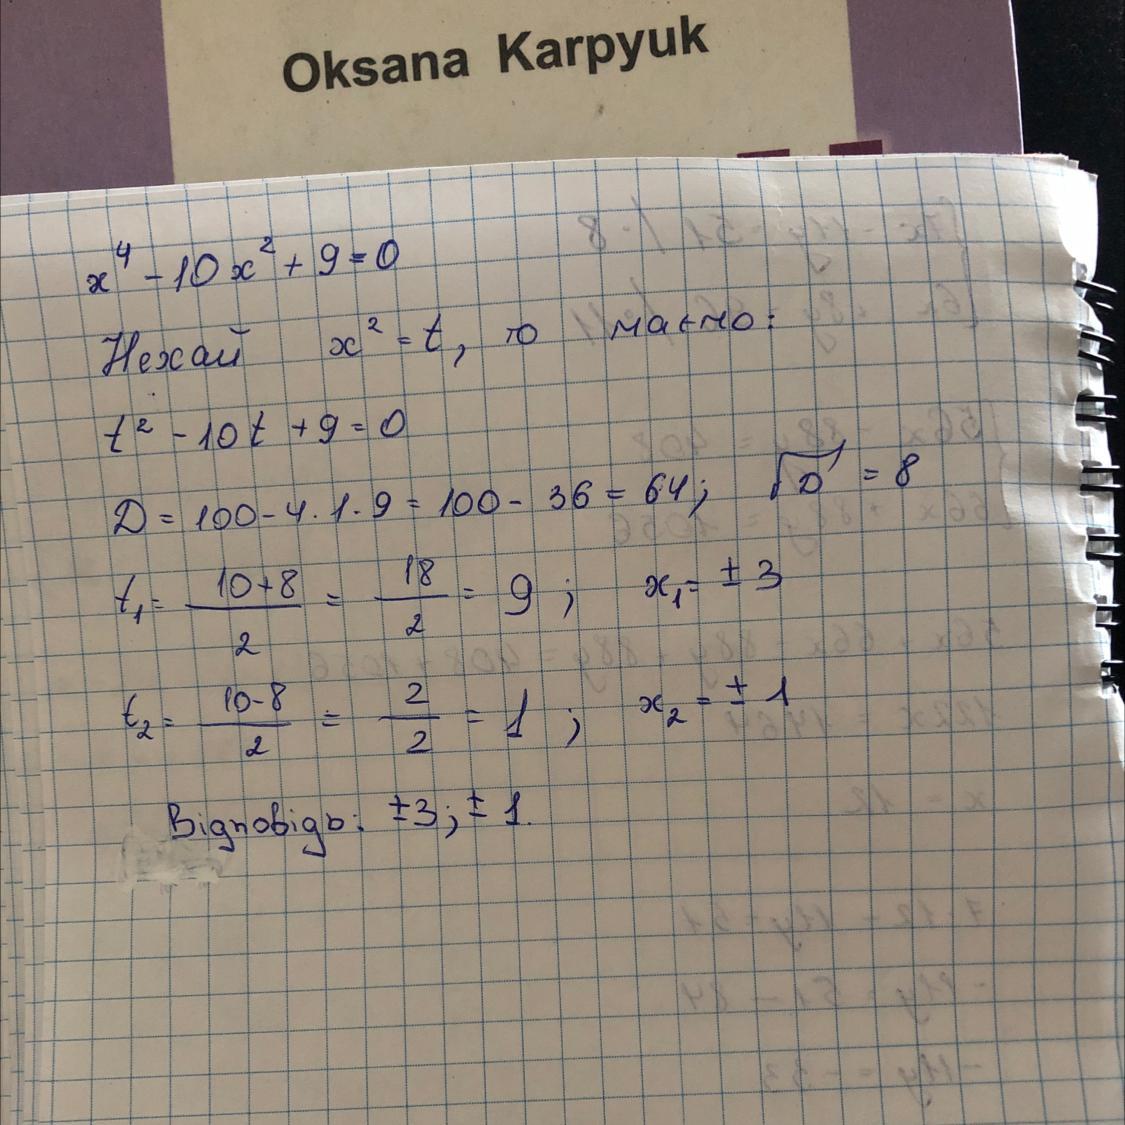 Oksana Karpyuk
x⁴ - 10x² + 9 = 0
Нехай x² = t, то маємо:
t² - 10t + 9 = 0
D = 100 - 4 · 1 · 9 = 100 - 36 = 64; √D = 8
t₁ = (10+8)/2 = 18/2 = 9; x₁ = ± 3
t₂ = (10-8)/2 = 2/2 = 1; x₂ = ± 1
Відповідь: ±3; ± 1.